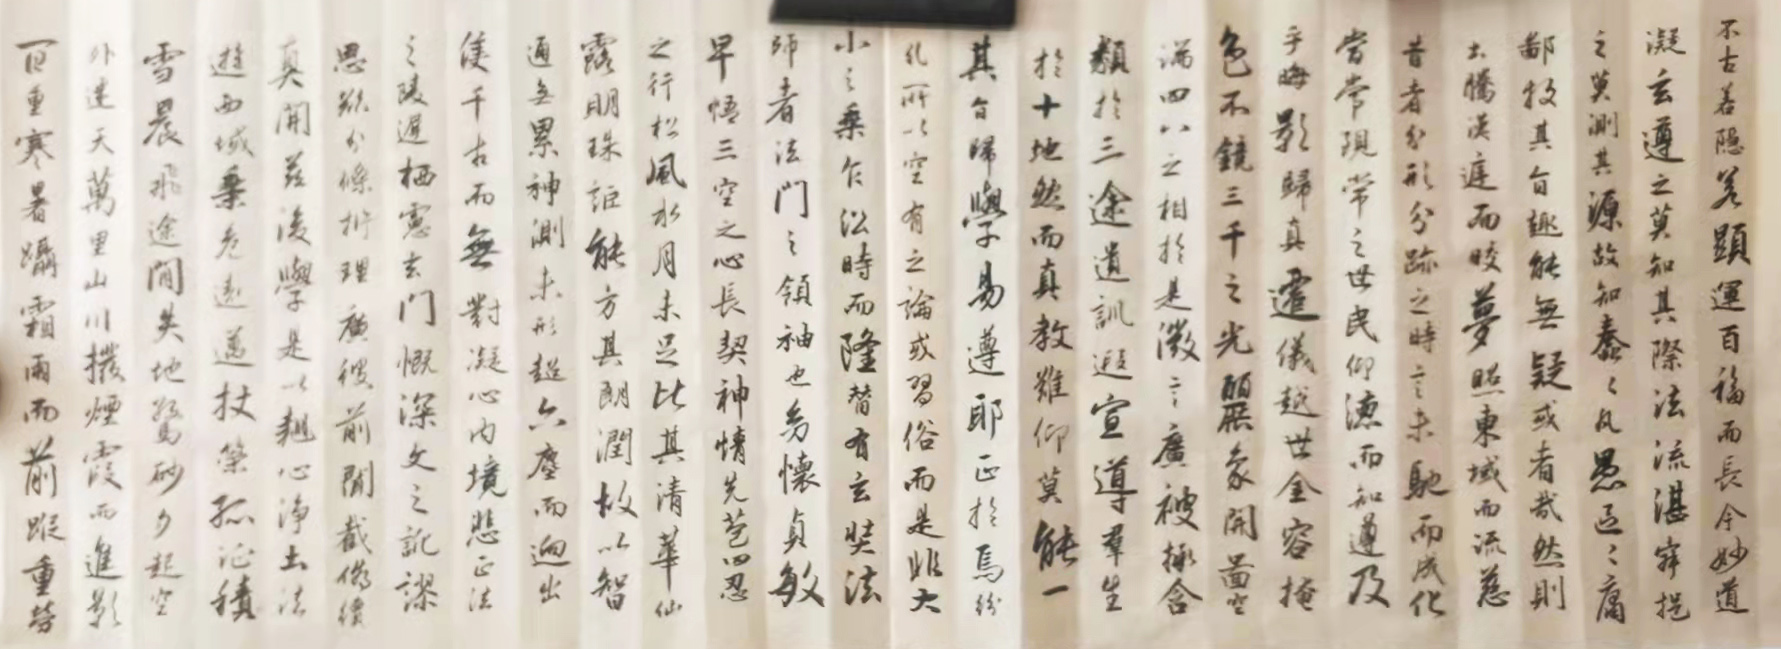 不古若隱若顯運百福而長今妙道
凝玄遵之莫知其際法流湛寂挹
之莫測其源故知蠢々凡愚區々庸
鄙投其旨趣能無疑或者哉然則
土騰漢庭而皎夢照東域而流慈
昔者分形分跡之時言未馳而成化
當常現常之世民仰德而知遵及
乎晦影歸真遷儀越世金容掩
色不鏡三千之光麗象開圖空
端四八之相於是微言廣被拯含
類於三途遺訓遐宣導羣生
於十地然而真教難仰莫能一
其旨歸學易遵耶正於焉紛
糺所以空有之論或習俗而是非大
小之乘乍沿時而隆替有玄奘法
師者法門之領袖也幼懷貞敏
早悟三空之心長契神情先苞四忍
之行松風水月未足比其清華仙
露明珠詎能方其朗潤故以智
通無累神測未形超六塵而迥出
隻千古而無對凝心內境悲正法
之陵遲栖慮玄門慨深文之訛謬
思欲分條析理廣彼前聞截偽續
真開茲後學是以翹心淨土法
遊西域乘危遠邁杖策孤征積
雪晨飛途間失地驚砂夕起空
外迷天萬里山川撥煙霞而進影
百重寒暑躡霜雨而前蹤重勞